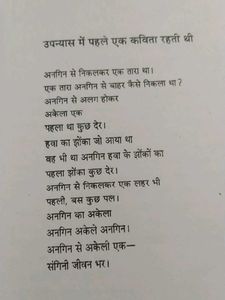 उपन्यास में पहले एक कविता रहती थी
अनगिन से निकलकर एक तारा था।
एक तारा अनगिन से बाहर कैसे निकला था?
अनगिन से अलग होकर
अकेला एक
पहला था कुछ देर।
हवा का झोंका जो आया था
वह भी था अनगिन हवा के झोंकों का
पहला झोंका कुछ देर।
अनगिन से निकलकर एक लहर भी
पहली, बस कुछ पल।
अनगिन का अकेला
अनगिन अकेले अनगिन।
अनगिन से अकेली एक—
संगिनी जीवन भर।